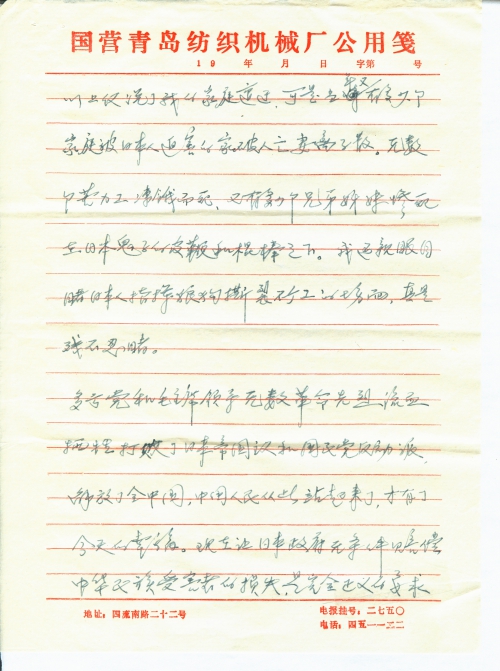 国营青岛纺织机械厂公用笺
19 年 月 日 字第 号
以上仅说了我的家庭遭迂,可是当 有多少个
家庭被日本人迫害的家破人亡妻离子散。无数
个劳力工冻饿而死,又有多少个兄弟姊妹惨死
在日本鬼子的皮鞭和棍棒之下。我还亲眼目
睹日本人指挥狼狗撕裂 工的 ,真是
残不忍睹。
多亏党和毛主席领导无数革命先烈流血
牺牲打败了日本帝国 和国民党反动派,
解放了全中国,中国人民从此站起来了,才有了
今天的幸福。现在让日本政府 赔偿
中华民族受害者的损失,是完全正义的要求
地址:四流南路二十二号
电报挂号:二七五〇
电话:四五一一二二